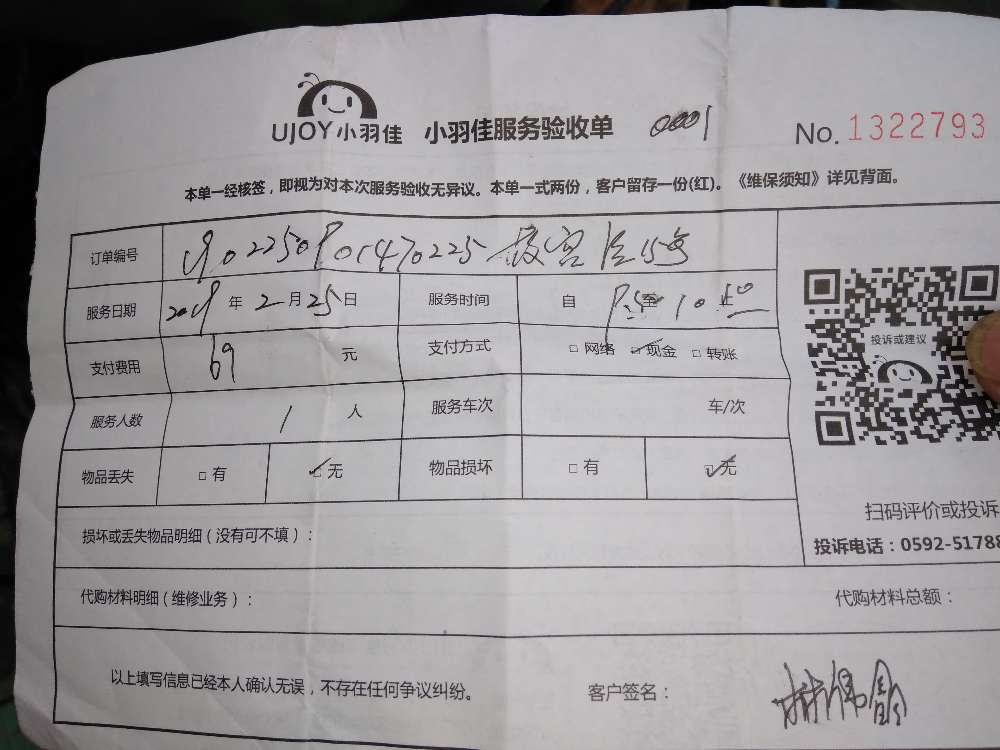 UJOY小羽佳 小羽佳服务验收单 0001 No. 1322793
本单一经核签，即视为对本次服务验收无异议。本单一式两份，客户留存一份(红)。《维保须知》详见背面。
订单编号
服务日期 2019 年 2 月 25 日 服务时间 自 至 10:50 止
支付费用 69 元 支付方式 □ 网络 ☑ 现金 □ 转账
服务人数 1 人 服务车次 车/次
物品丢失 □ 有 ☑ 无 物品损坏 □ 有 ☑ 无
投诉或建议
扫码评价或投诉
投诉电话：0592-51788
损坏或丢失物品明细（没有可不填）：
代购材料明细（维修业务）： 代购材料总额：
以上填写信息已经本人确认无误，不存在任何争议纠纷。 客户签名：